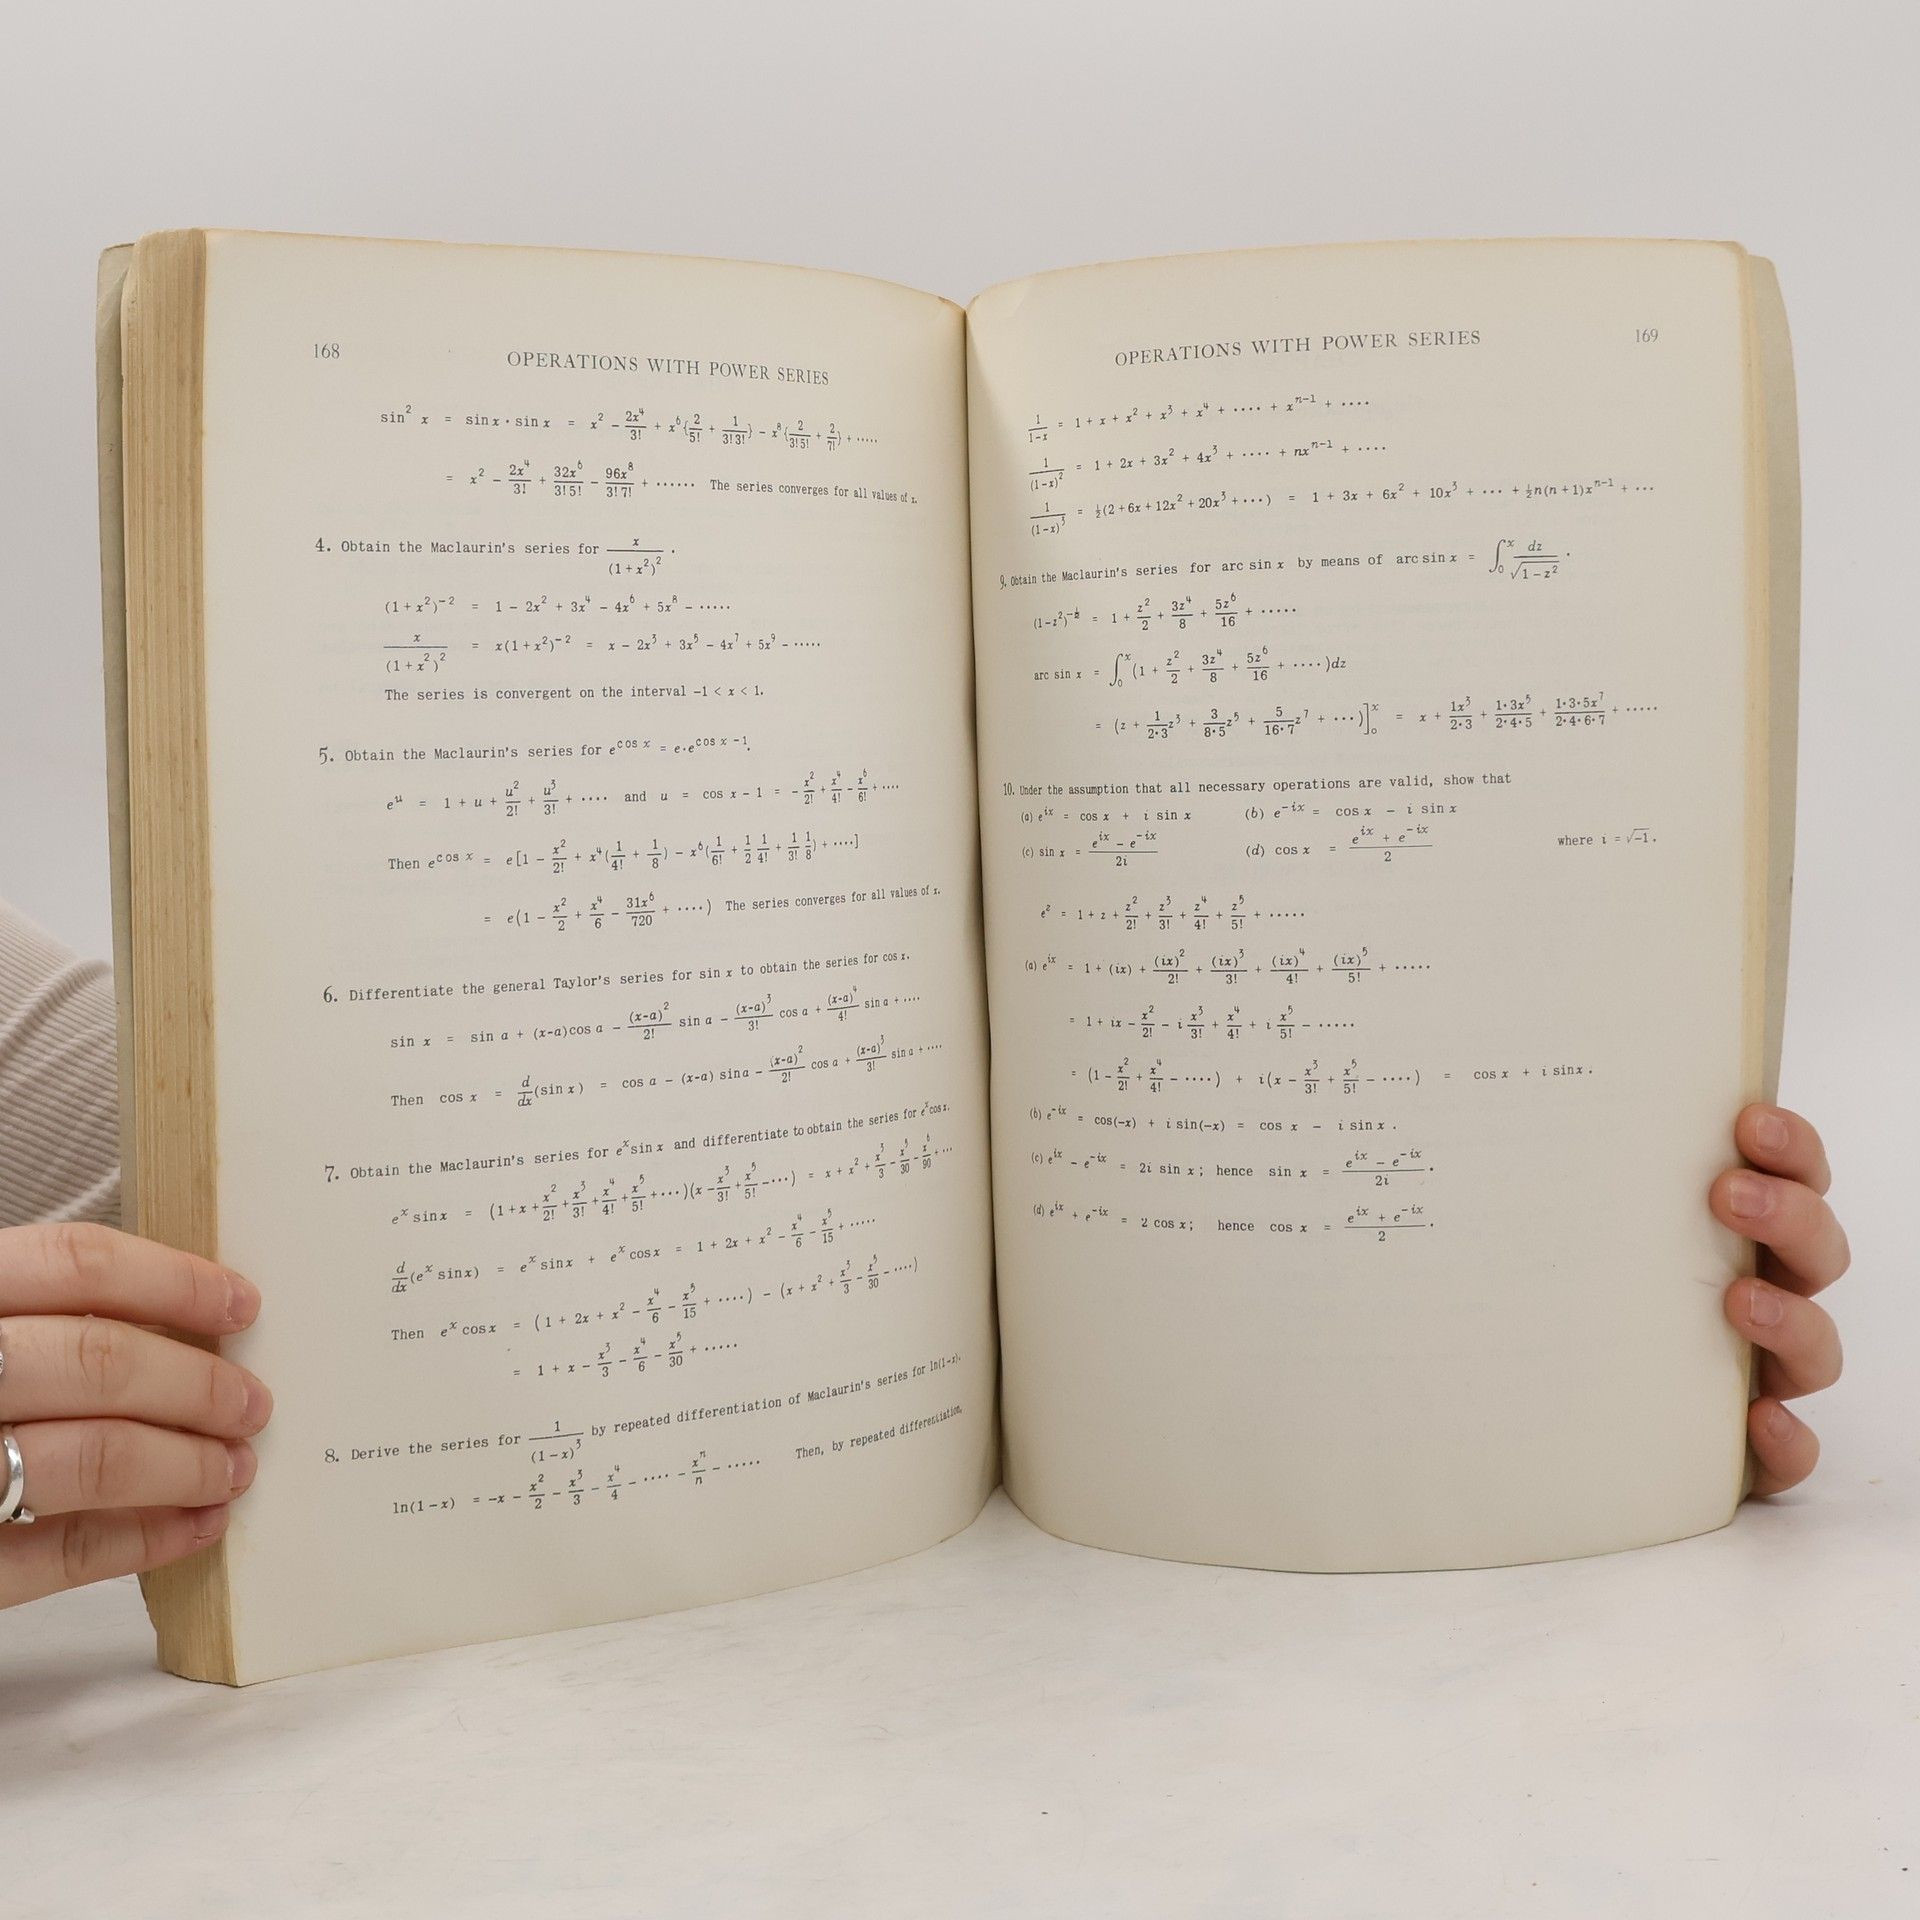 168
OPERATIONS WITH POWER SERIES
sin² x = sin x · sin x = x² − 2x⁴/3! + x⁶{2/5! + 1/(3!3!)} − x⁸{2/(3!5!) + 2/7!} + ·····
= x² − 2x⁴/3! + 32x⁶/(3!5!) − 96x⁸/(3!7!) + ······ The series converges for all values of x.
4. Obtain the Maclaurin's series for x/(1+x²)² .
(1+x²)⁻² = 1 − 2x² + 3x⁴ − 4x⁶ + 5x⁸ − ·····
x/(1+x²)² = x(1+x²)⁻² = x − 2x³ + 3x⁵ − 4x⁷ + 5x⁹ − ·····
The series is convergent on the interval −1 < x < 1.
5. Obtain the Maclaurin's series for e^(cos x) = e·e^(cos x −1).
e^u = 1 + u + u²/2! + u³/3! + ···· and u = cos x − 1 = −x²/2! + x⁴/4! − x⁶/6! + ····
Then e^(cos x) = e[1 − x²/2! + x⁴(1/4! + 1/8) − x⁶(1/6! + 1/2 1/4! + 1/3! 1/8) + ····]
= e(1 − x²/2 + x⁴/6 − 31x⁶/720 + ····) The series converges for all values of x.
6. Differentiate the general Taylor's series for sin x to obtain the series for cos x.
sin x = sin a + (x-a)cos a − (x-a)²/2! sin a − (x-a)³/3! cos a + (x-a)⁴/4! sin a + ····
Then cos x = d/dx(sin x) = cos a − (x-a) sin a − (x-a)²/2! cos a + (x-a)³/3! sin a + ····
7. Obtain the Maclaurin's series for e^x sin x and differentiate to obtain the series for e^x cos x.
e^x sin x = (1 + x + x²/2! + x³/3! + x⁴/4! + x⁵/5! + ···)(x − x³/3! + x⁵/5! − ···) = x + x² + x³/3 − x⁵/30 − x⁶/90 + ···
d/dx(e^x sin x) = e^x sin x + e^x cos x = 1 + 2x + x² − x⁴/6 − x⁵/15 + ·····
Then e^x cos x = (1 + 2x + x² − x⁴/6 − x⁵/15 + ····) − (x + x² + x³/3 − x⁵/30 − ····)
= 1 + x − x³/3 − x⁴/6 − x⁵/30 + ·····
8. Derive the series for 1/(1−x)³ by repeated differentiation of Maclaurin's series for ln(1−x).
ln(1−x) = −x − x²/2 − x³/3 − x⁴/4 − ···· − xⁿ/n − ····· Then, by repeated differentiation,
OPERATIONS WITH POWER SERIES
169
1/(1−x) = 1 + x + x² + x³ + x⁴ + ···· + xⁿ⁻¹ + ····
1/(1−x)² = 1 + 2x + 3x² + 4x³ + ···· + nxⁿ⁻¹ + ····
1/(1−x)³ = ½(2 + 6x + 12x² + 20x³ + ···) = 1 + 3x + 6x² + 10x³ + ··· + ½n(n+1)xⁿ⁻¹ + ···
9. Obtain the Maclaurin's series for arc sin x by means of arc sin x = ∫₀ˣ dz/√(1−z²) .
(1−z²)^(−½) = 1 + z²/2 + 3z⁴/8 + 5z⁶/16 + ·····
arc sin x = ∫₀ˣ (1 + z²/2 + 3z⁴/8 + 5z⁶/16 + ····)dz
= (z + 1/(2·3) z³ + 3/(8·5) z⁵ + 5/(16·7) z⁷ + ···)]₀ˣ = x + 1x³/(2·3) + 1·3x⁵/(2·4·5) + 1·3·5x⁷/(2·4·6·7) + ·····
10. Under the assumption that all necessary operations are valid, show that
(a) e^(ix) = cos x + i sin x (b) e^(−ix) = cos x − i sin x
(c) sin x = (e^(ix) − e^(−ix))/2i (d) cos x = (e^(ix) + e^(−ix))/2 where i = √−1.
e^z = 1 + z + z²/2! + z³/3! + z⁴/4! + z⁵/5! + ·····
(a) e^(ix) = 1 + (ix) + (ix)²/2! + (ix)³/3! + (ix)⁴/4! + (ix)⁵/5! + ·····
= 1 + ix − x²/2! − i x³/3! + x⁴/4! + i x⁵/5! − ·····
= (1 − x²/2! + x⁴/4! − ····) + i(x − x³/3! + x⁵/5! − ····) = cos x + i sin x.
(b) e^(−ix) = cos(−x) + i sin(−x) = cos x − i sin x .
(c) e^(ix) − e^(−ix) = 2i sin x; hence sin x = (e^(ix) − e^(−ix))/2i .
(d) e^(ix) + e^(−ix) = 2 cos x; hence cos x = (e^(ix) + e^(−ix))/2 .